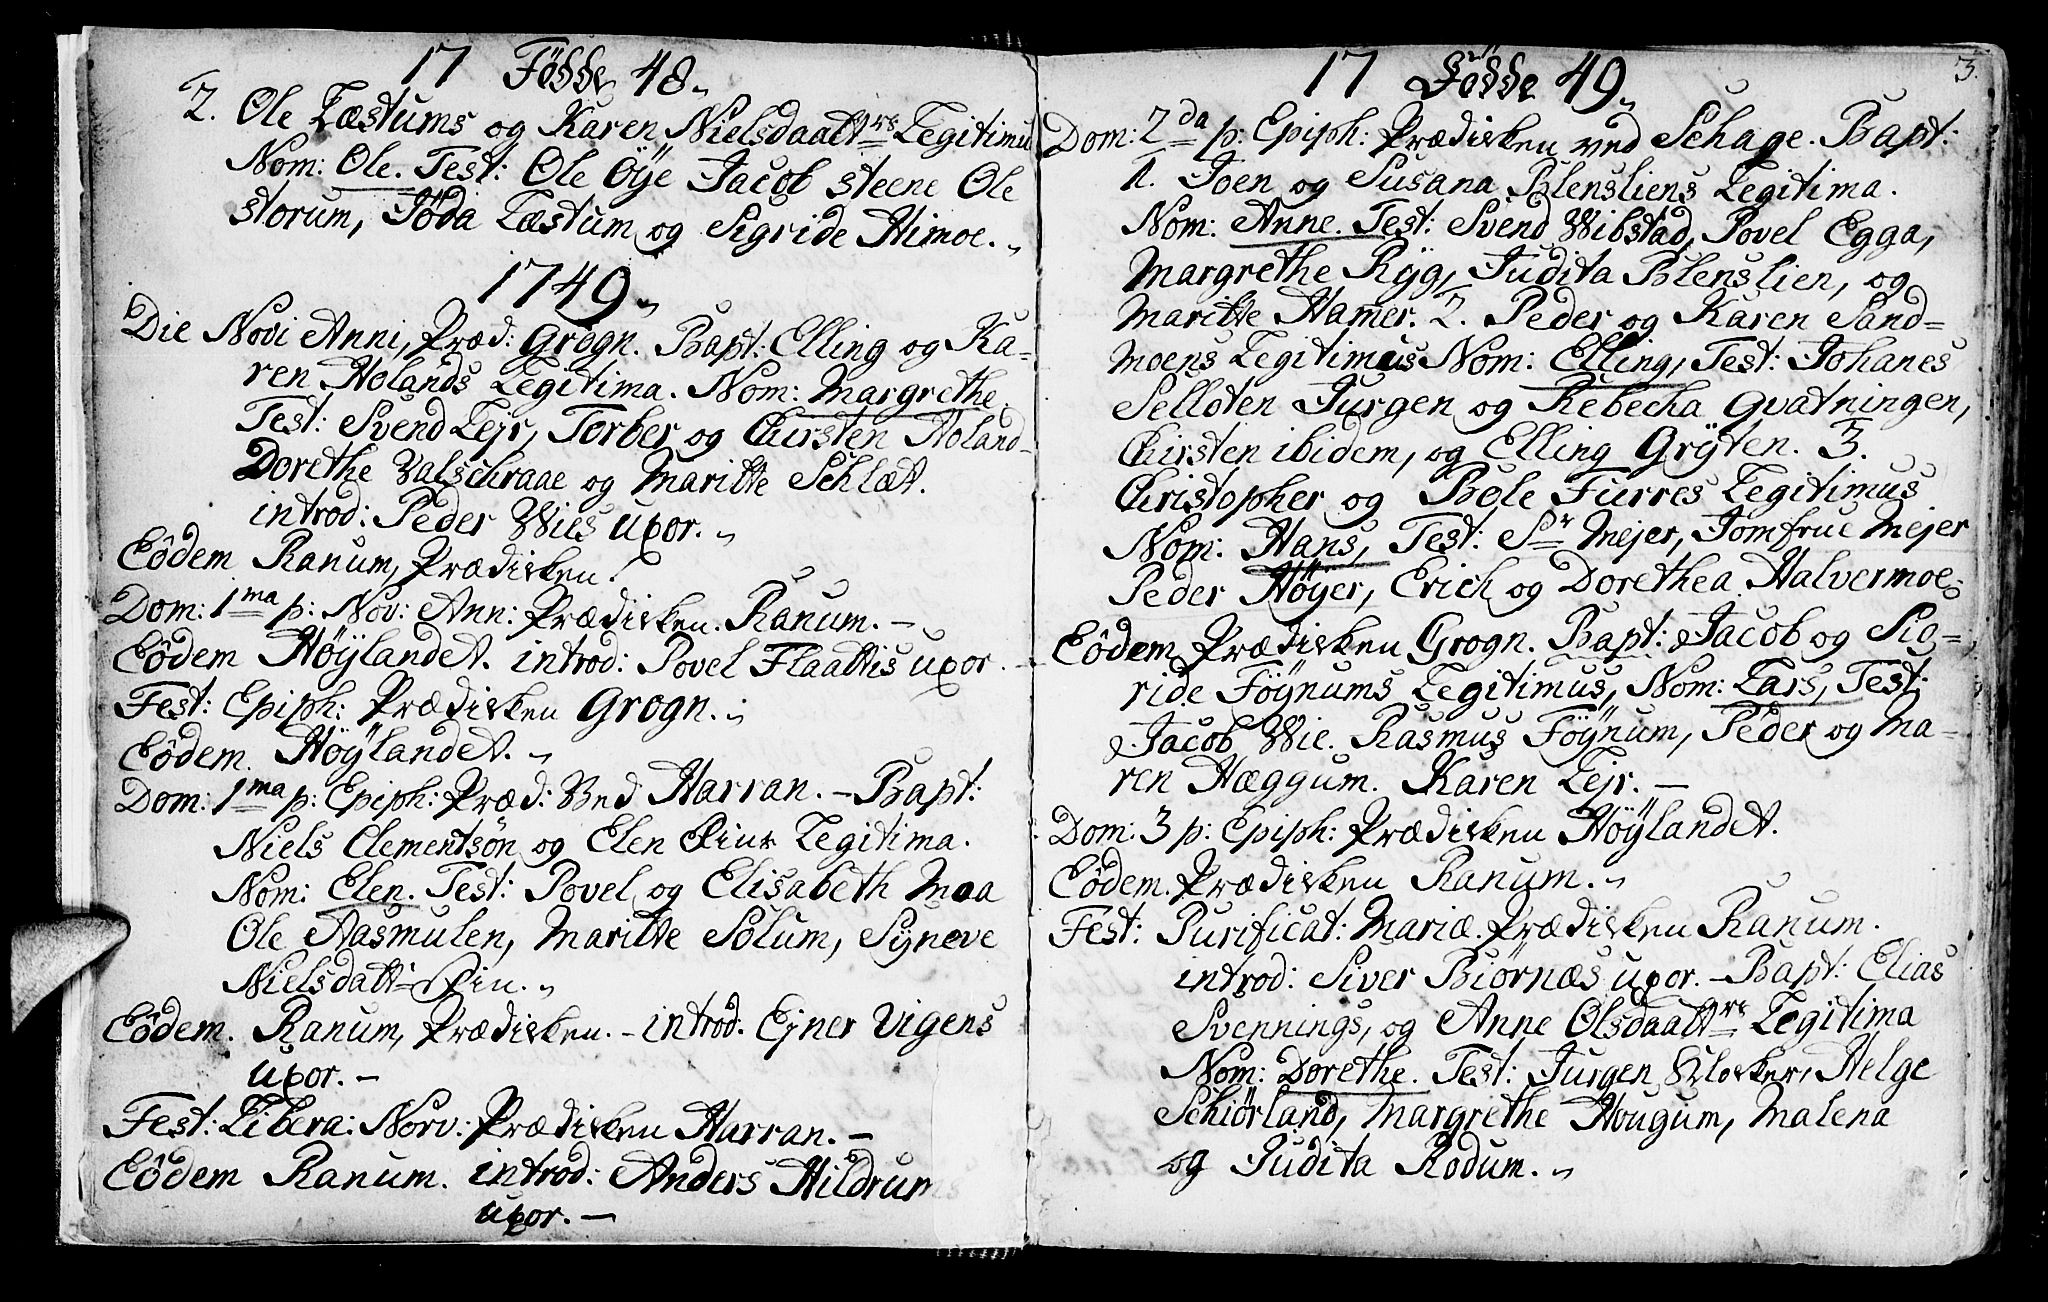 17 Födde 48.
2. Ole Læstums og Karen Nielsdaattrs Legitimu
Nom: Ole. Test: Ole Öye Jacob Steene Ole
Storum, Joda Læstum og Sigride Himoe.
1749.
Die Novi Anni, Præd: Grogn. Bapt: Elling og Ka=
ren Holands Legitima. Nom: Margrethe.
Test: Svend Lejr, Torber og Chirsten Holand
Dorethe Valschraae og Maritte Schlæt.
introd: Peder Wies uxor.
Eôdem Ranum, Prædicken.
Dom: 1ma p: Nov: Ann: Prædicken. Ranum.
Eôdem Höÿlandet. introd: Povel Flaattis uxor.
Fest: Epiph: Prædicken Grogn.
Eôdem. Höÿlandet.
Dom: 1ma p: Epiph: Præd: Ved Harran. - Bapt:
Niels Clementsön og Elen Legitima.
Nom: Elen. Test: Povel og Elisabeth Moa
Ole Aasmulen, Maritte Solum, Sÿneve
Nielsdatt:
Eôdem. Ranum, Prædicken. - introd. Ejner Vigens
uxor. -
Fest: Libera: Norv: Prædicken Harran. -
Eôdem Ranum. introd: Anders Hildrums
uxor. -
3.
17 Födde 49.
Dom: 2da p: Epiph: Prædicken ved Schage. Bapt:
1. Joen og Susana Blensliens Legitima.
Nom: Anne. Test: Svend Wibstad, Povel Egga,
Margrethe Rÿg, Judita Blenslien, og
Maritte Hamer. 2. Peder og Karen Sand=
moens Legitimus Nom: Elling, Test: Johanes
Selloten Jurgen og Rebecka Gvatningen,
Chirsten ibidem, og Elling Grÿten. 3.
Christopher og Bole Furres Legitimus
Nom: Hans, Test: Sr Mejer, Jomfrue Mejer
Peder Höÿer, Erich og Dorethea Halvermoe.
Eôdem Prædicken Grogn. Bapt: Jacob og Sig=
ride Föÿnums Legitimus, Nom: Lars, Test:
Jacob Wie. Rasmus Föÿnum, Peder og Ma=
ren Hæggum. Karen Lejr. -
Dom: 3 p: Epiph: Prædicken Höÿlandet.
Eôdem. Prædicken Ranum.
Fest: Purificat: Mariæ. Prædicken Ranum.
introd: Siver Biörnæs uxor. - Bapt: Elias
Svennings, og Anne Olsdaattrs Legitima
Nom: Dorethe. Test: Jurgen Klocker, Helge
Schiörland, Margrethe Hougum, Malena
og Judita Rodum.